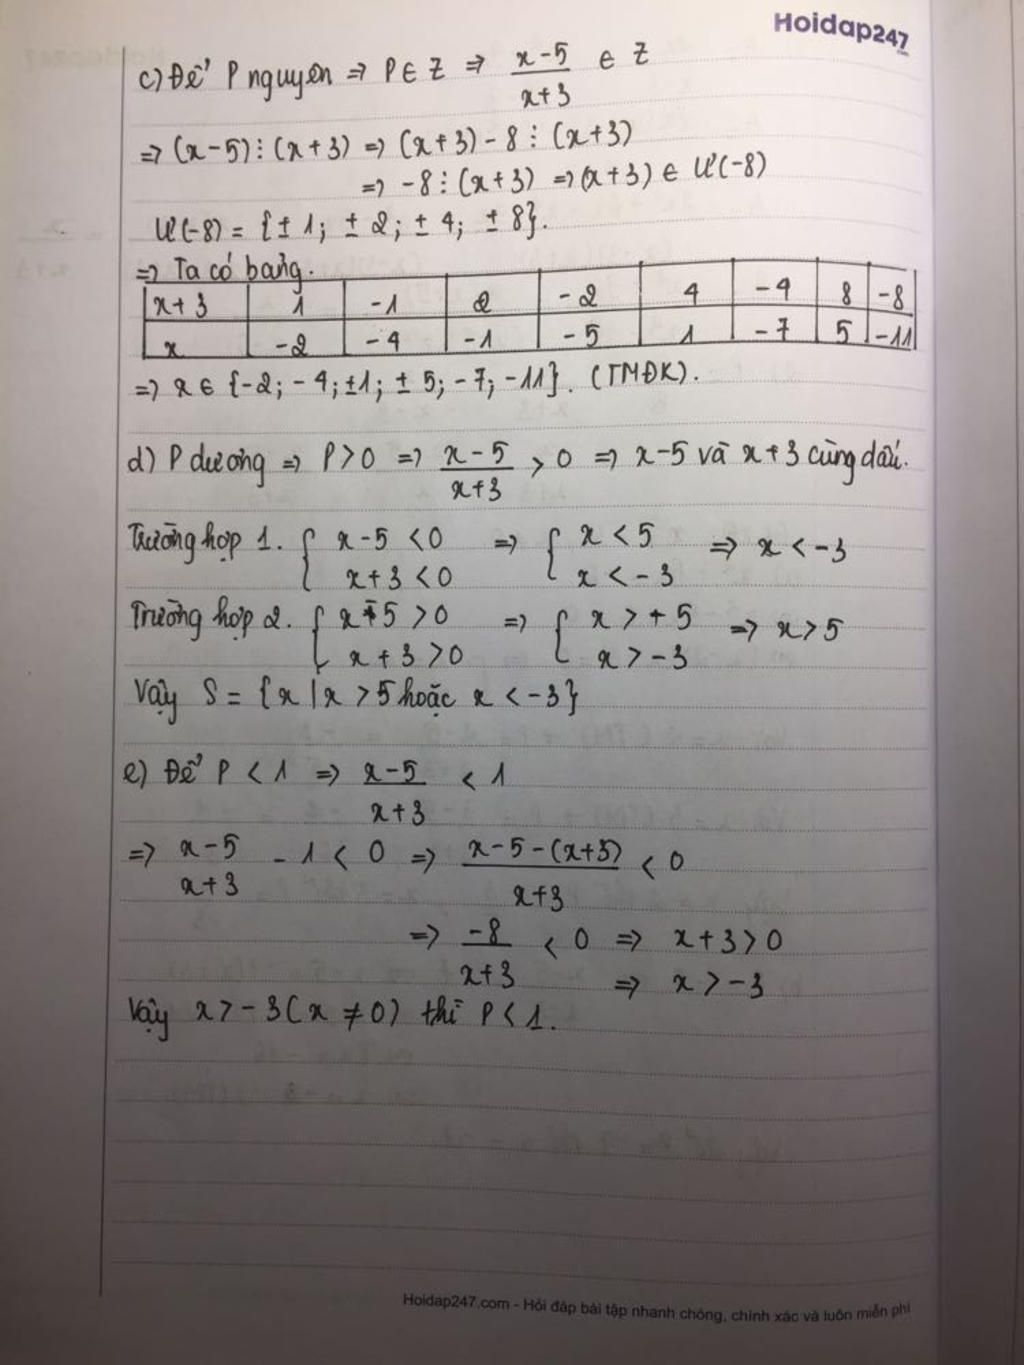 Hoidap247
.com
c) Để P nguyên => P ∈ Z => (x-5)/(x+3) ∈ Z
=> (x-5) ⋮ (x+3) => (x+3) - 8 ⋮ (x+3)
=> -8 ⋮ (x+3) => (x+3) ∈ Ư(-8)
Ư(-8) = {±1; ±2; ±4; ±8}.
=> Ta có bảng.
x+3 | 1 | -1 | 2 | -2 | 4 | -4 | 8 | -8
x | -2 | -4 | -1 | -5 | 1 | -7 | 5 | -11
=> x ∈ {-2; -4; ±1; ±5; -7; -11}. (TMĐK).
d) P dương => P > 0 => (x-5)/(x+3) > 0 => x-5 và x+3 cùng dấu.
Trường hợp 1. { x-5 < 0 => { x < 5 => x < -3
x+3 < 0 x < -3
Trường hợp 2. { x-5 > 0 => { x > +5 => x > 5
x+3 > 0 x > -3
Vậy S = {x | x > 5 hoặc x < -3}
e) Để P < 1 => (x-5)/(x+3) < 1
=> (x-5)/(x+3) - 1 < 0 => (x-5-(x+3))/(x+3) < 0
=> -8/(x+3) < 0 => x+3 > 0
=> x > -3
Vậy x > -3 (x ≠ 0) thì P < 1.
Hoidap247.com - Hỏi đáp bài tập nhanh chóng, chính xác và luôn miễn phí